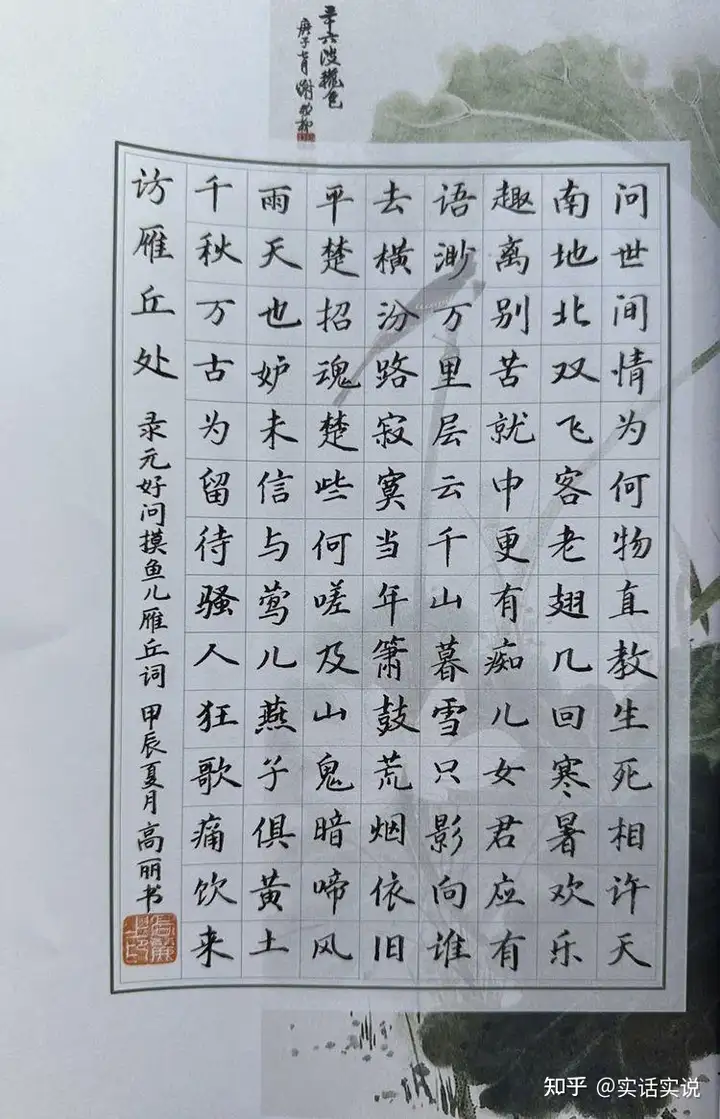 庚子七月
问世间情为何物直教生死相许天
南地北双飞客老翅几回寒暑欢乐
趣离别苦就中更有痴儿女君应有
语渺万里层云千山暮雪只影向谁
去横汾路寂寞当年箫鼓荒烟依旧
平楚招魂楚些何嗟及山鬼暗啼风
雨天也妒未信与莺儿燕子俱黄土
千秋万古为留待骚人狂歌痛饮来
访雁丘处 录元好问摸鱼儿雁丘词 甲辰夏月 高丽书
知乎 @实话实说